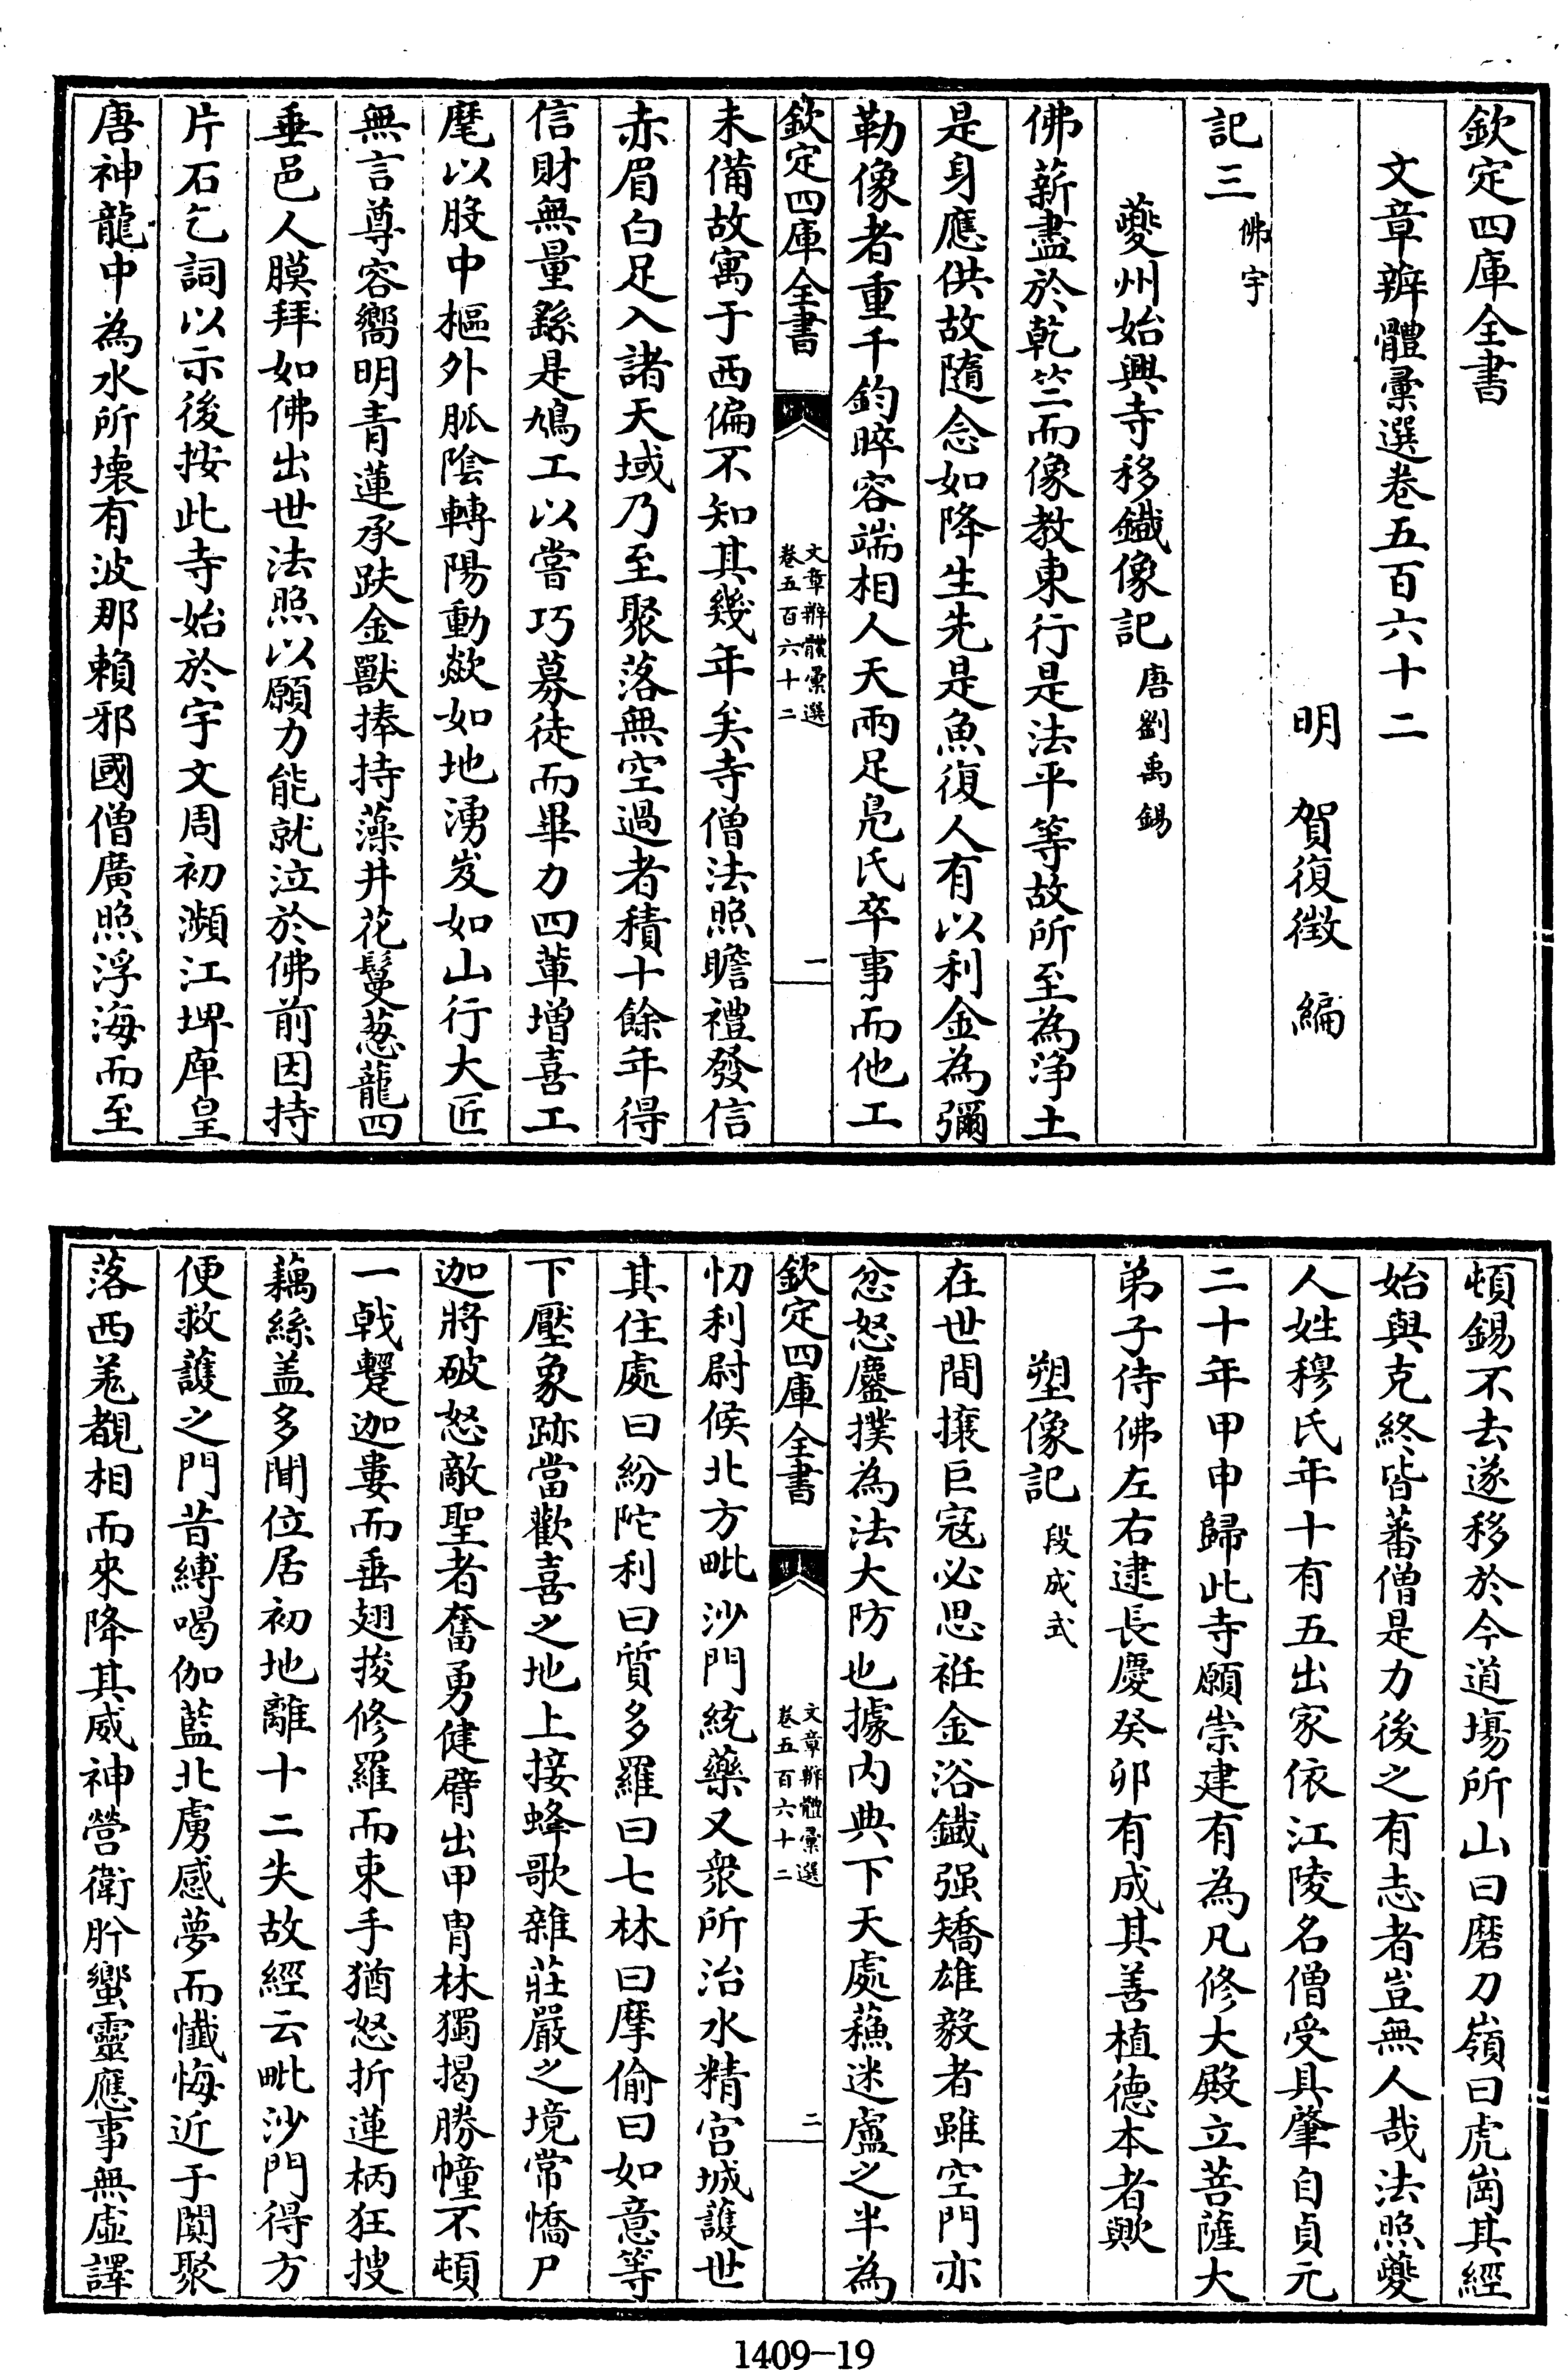 欽定四庫全書
文章辨體彙選卷五百六十二
明 賀復徵 編
記三佛宇
夔州始興寺移鐵像記唐劉禹錫
佛薪盡於乾竺而像教東行是法平等故所至為淨土
是身應供故隨念如降生先是魚復人有以利金為彌
勒像者重千鈞晬容端相人天兩足鳧氏卒事而他工
欽定四庫全書
文章辨體彙選
卷五百六十二
一
未備故寓于西偏不知其幾年矣寺僧法照瞻禮發信
赤眉白足入諸天域乃至聚落無空過者積十餘年得
信財無量繇是鳩工以嘗巧募徒而畢力四輩增喜工
麾以肱中樞外脈陰轉陽動歘如地湧岌如山行大匠
無言尊容嚮明青蓮承趺金獸捧持藻井花鬘蔥蘢四
垂邑人膜拜如佛出世法照以願力能就泣於佛前因持
片石乞詞以示後按此寺始於宇文周初瀕江埤庳皇
唐神龍中為水所壞有波那賴邪國僧廣照浮海而至
頓錫不去遂移於今道場所山曰磨刀嶺曰虎崗其經
始與克終皆蕃僧是力後之有志者豈無人哉法照夔
人姓穆氏年十有五出家依江陵名僧受具肇自貞元
二十年甲申歸此寺願崇建有為凡修大殿立菩薩大
弟子侍佛左右逮長慶癸卯有成其善植德本者歟
塑像記段成式
在世間攘巨寇必思袵金浴鐵强矯雄毅者雖空門亦
忿怒鏖撲為法大防也據內典下天處蘓迷盧之半為
欽定四庫全書
文章辨體彙選
卷五百六十二
二
忉利尉候北方毗沙門統藥叉衆所治水精宮城護世
其住處曰紛陀利曰質多羅曰七林曰摩偷曰如意等
下壓象跡當歡喜之地上接蜂歌雜莊嚴之境常憍尸
迦將破怒敵聖者奮勇健臂出甲胄林獨揭勝幢不頓
一戟蹔迦婁而垂翅捘修羅而束手猶怒折蓮柄狂搜
藕絲盖多聞位居初地離十二失故經云毗沙門得方
便救護之門昔縛喝伽藍北虜感夢而懺悔近于闐聚
落西羗覩相而來降其威神營衛肸蠁靈應事無虛譯
1409-19